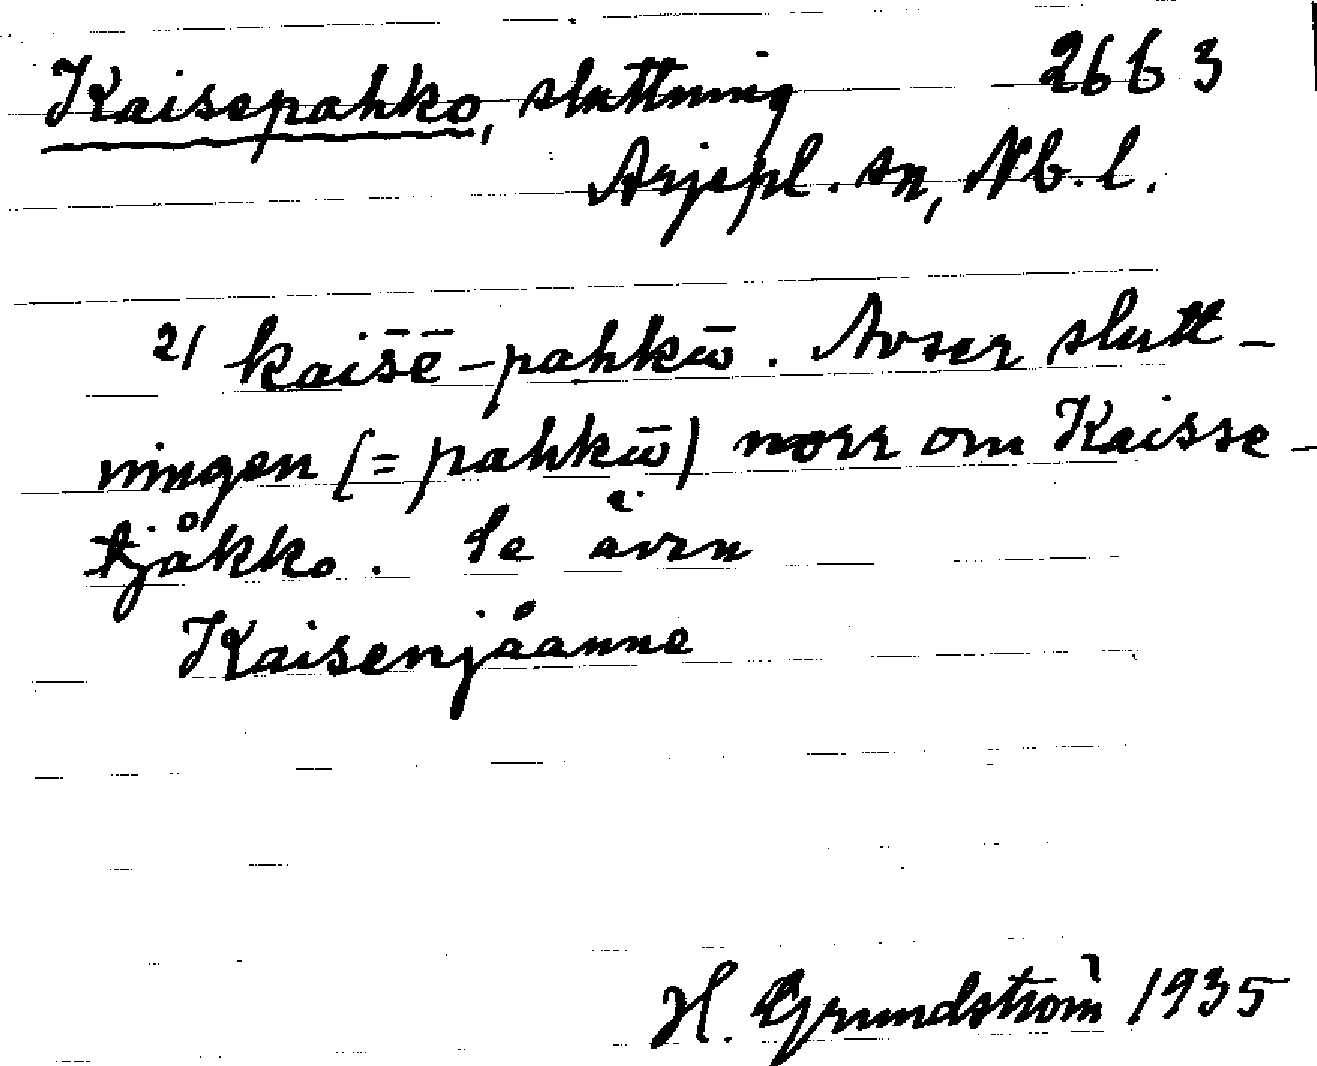 Kaisepahko, sluttning 2663
Arjepl. sn, Nb. l.
2/ kais̄ē-pahkω̄. Avser slutt-
ningen (= pahkω̄) norr om Kaisse-
tjåkko. Se även
Kaisenjåanne
H. Grundström 1935